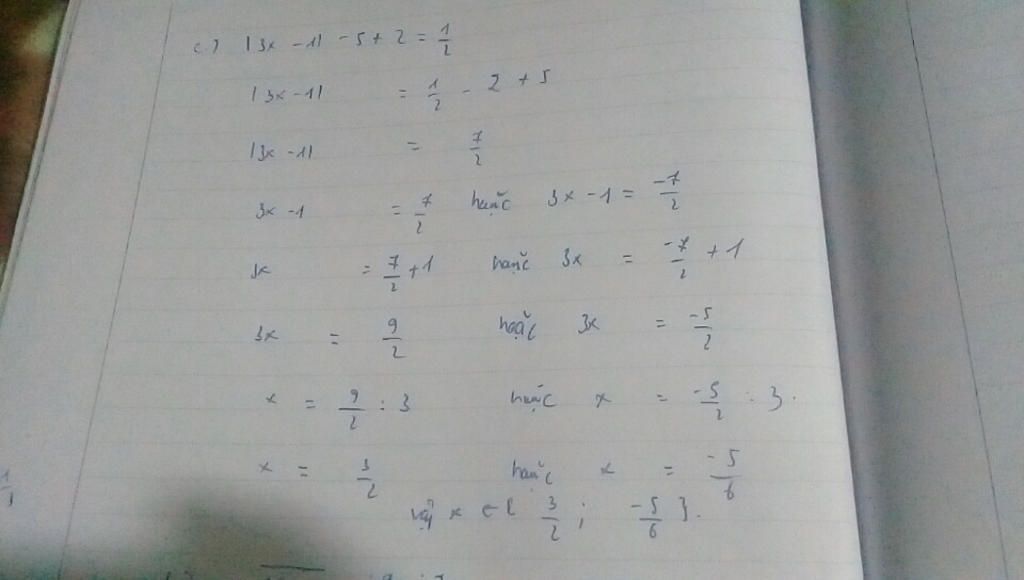 c.) |3x - 1| - 5 + 2 = 1/2
|3x - 1| = 1/2 - 2 + 5
|3x - 1| = 7/2
3x - 1 = 7/2 hoặc 3x - 1 = -7/2
3x = 7/2 + 1 hoặc 3x = -7/2 + 1
3x = 9/2 hoặc 3x = -5/2
x = 9/2 : 3 hoặc x = -5/2 : 3.
x = 3/2 hoặc x = -5/6
vậy x ∈ { 3/2 ; -5/6 }.